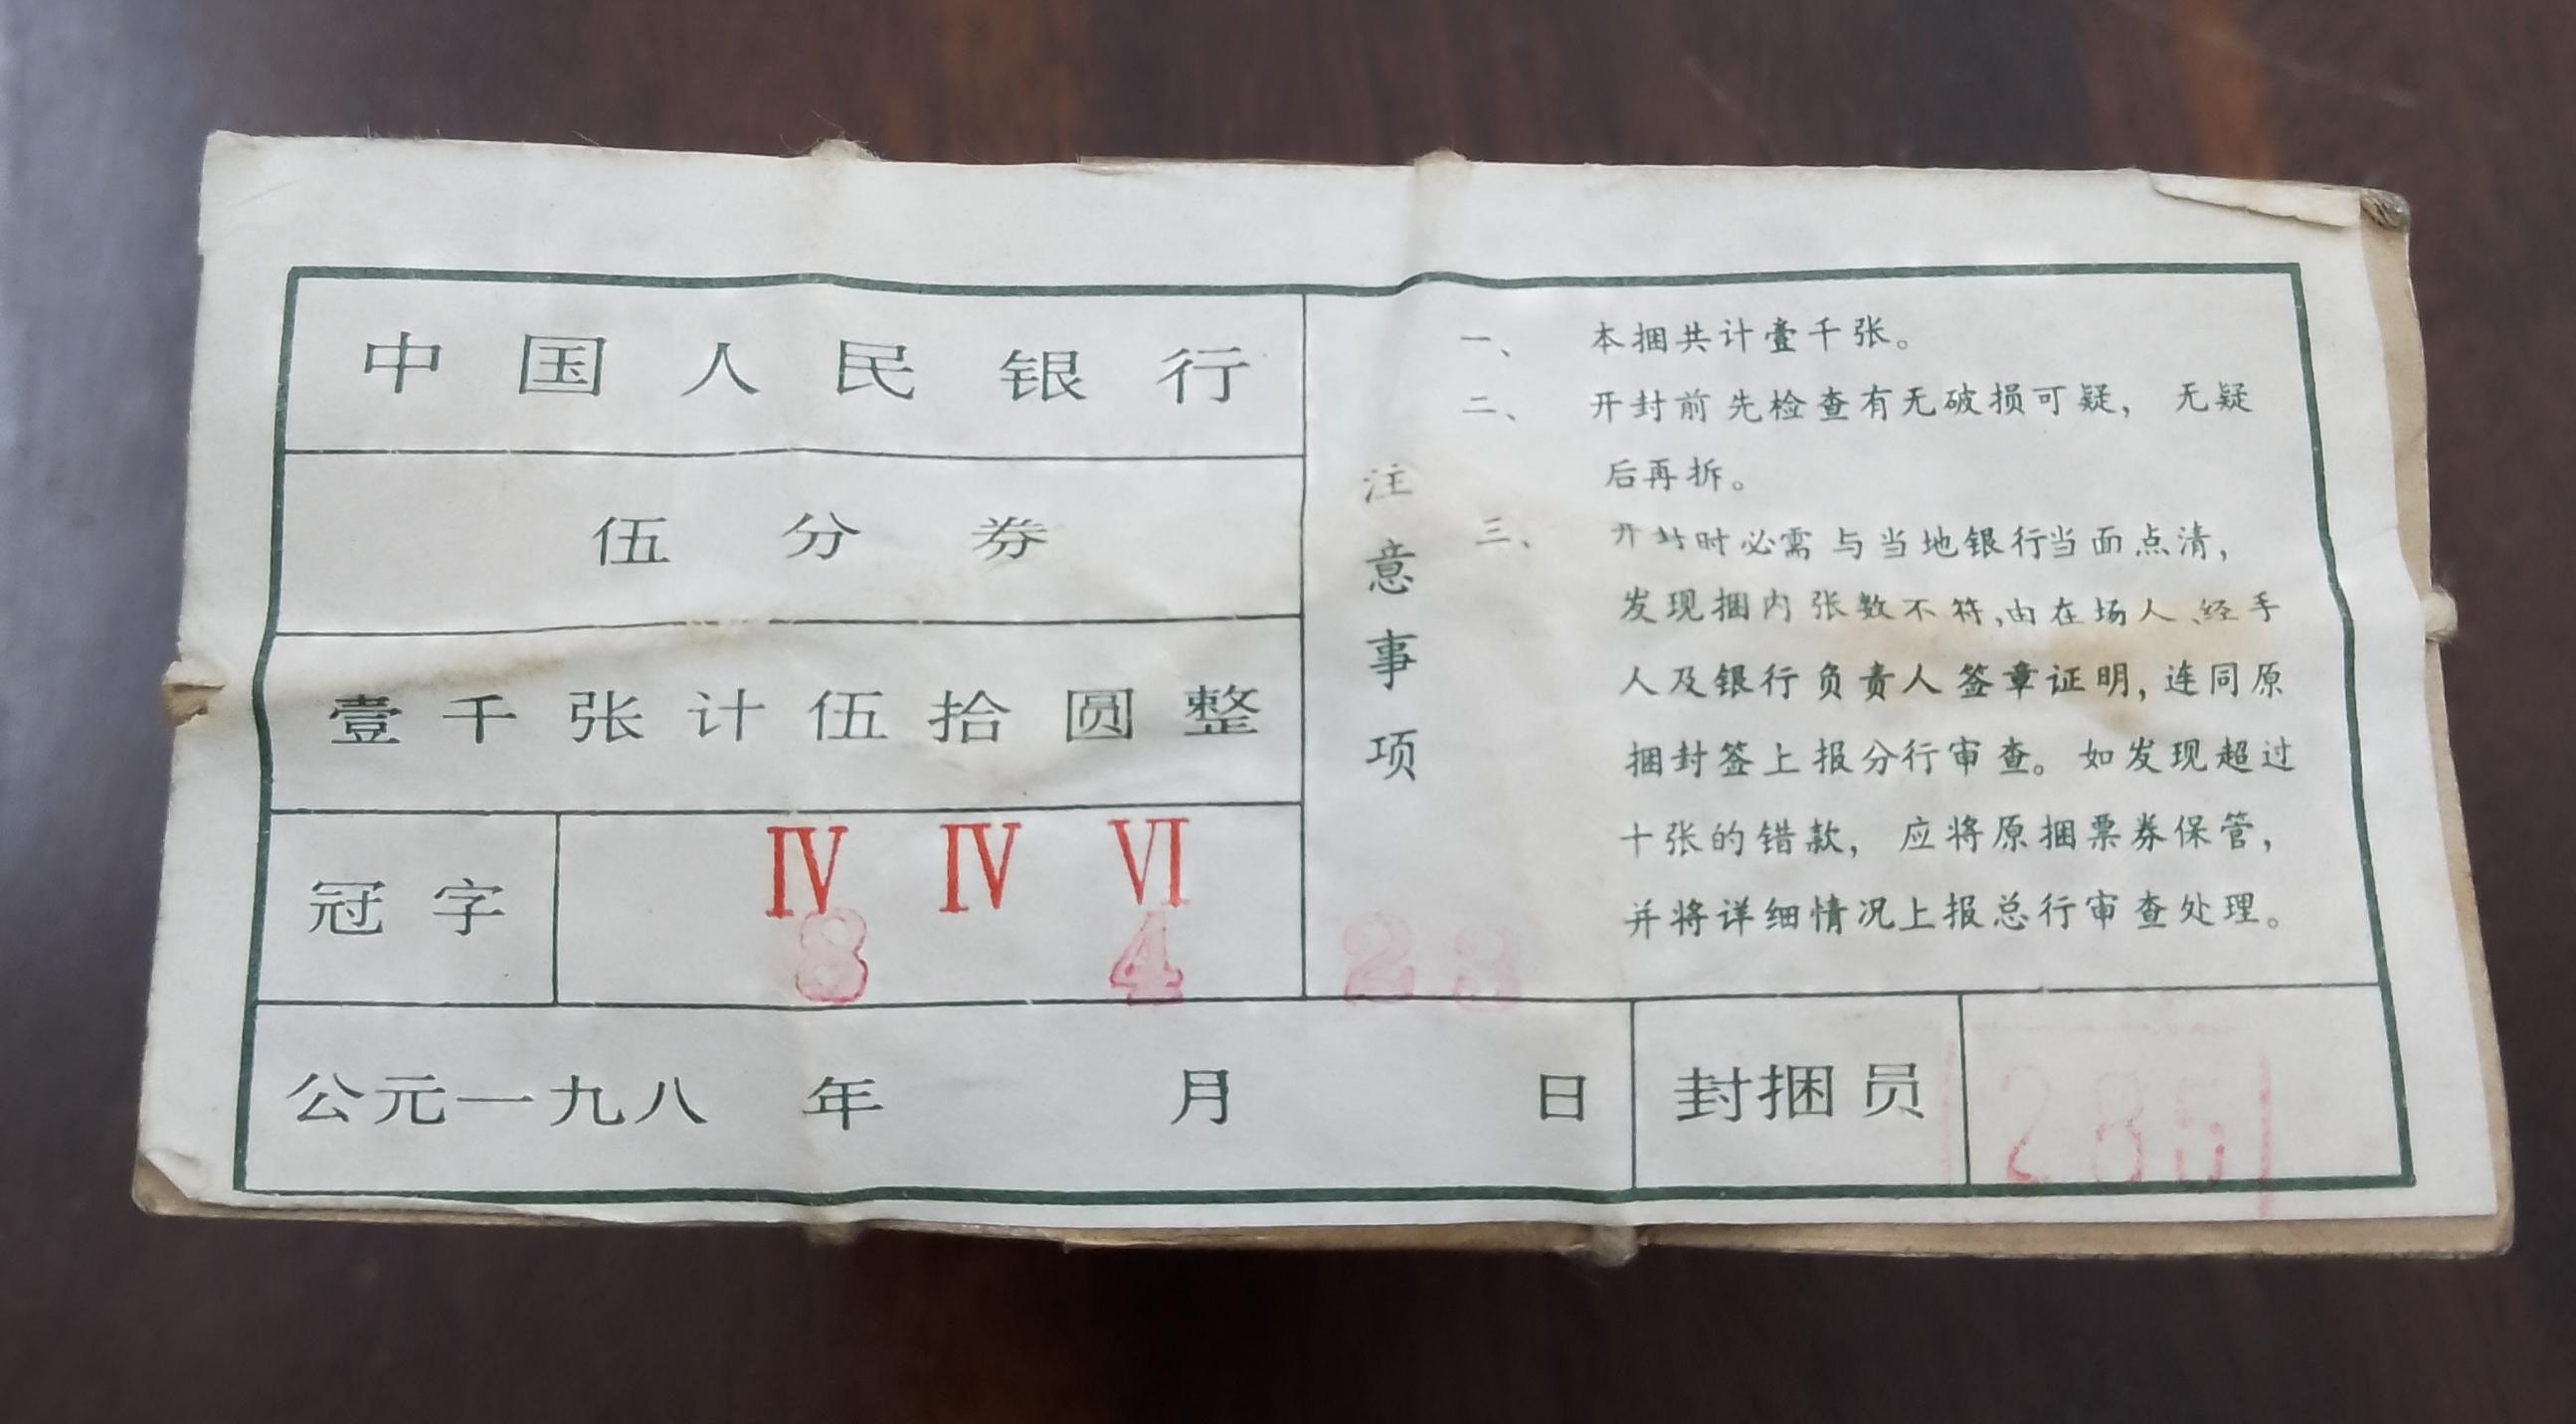 中国人民银行
伍分券
壹千张计伍拾圆整
冠字 Ⅳ Ⅳ Ⅵ
8 4 23
公元一九八 年 月 日
注意事项
一、 本捆共计壹千张。
二、 开封前先检查有无破损可疑， 无疑
后再拆。
三、 开封时必需与当地银行当面点清，
发现捆内张数不符，由在场人、经手
人及银行负责人签章证明，连同原
捆封签上报分行审查。如发现超过
十张的错款， 应将原捆票券保管，
并将详细情况上报总行审查处理。
封捆员 285